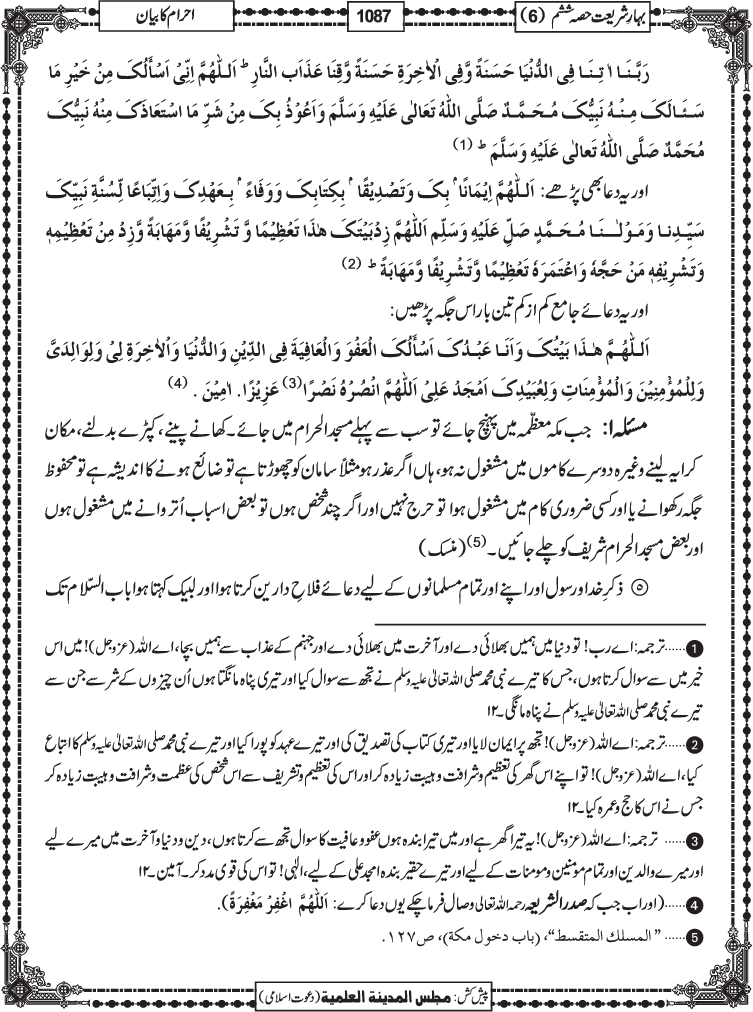 بہارِ شریعت حصہ ششم (6)
1087
احرام کا بیان
رَبَّنَا اٰتِنَا فِی الدُّنْیَا حَسَنَةً وَّفِی الْاٰخِرَةِ حَسَنَةً وَّقِنَا عَذَابَ النَّارِ ؕ اَللّٰھُمَّ اِنِّیْ اَسْأَلُکَ مِنْ خَیْرِ مَا
سَئَالَکَ مِنْهُ نَبِیُّکَ مُحَمَّدٌ صَلَّی اللّٰهُ تَعَالٰی عَلَیْهِ وَسَلَّمَ وَاَعُوْذُ بِکَ مِنْ شَرِّ مَا اسْتَعَاذَکَ مِنْهُ نَبِیُّکَ
مُحَمَّدٌ صَلَّی اللّٰهُ تَعَالٰی عَلَیْهِ وَسَلَّمَ ؕ (1)
اور یہ دعا بھی پڑھے: اَللّٰھُمَّ اِیْمَانًا ۢ بِکَ وَتَصْدِیْقًا ۢ بِکِتَابِکَ وَوَفَاءً ۢ بِعَھْدِکَ وَاتِّبَاعًا لِّسُنَّةِ نَبِیِّکَ
سَیِّدِنا وَمَوْلٰـنَا مُحَمَّدٍ صَلِّ عَلَیْهِ وَسَلِّم اَللّٰھُمَّ زِدْ بَیْتَکَ ھٰذَا تَعْظِیْمًا وَّ تَشْرِیْفًا وَّمَھَابَةً وَّزِدْ مِنْ تَعْظِیْمِهٖ
وَتَشْرِیْفِهٖ مَنْ حَجَّهٗ وَاعْتَمَرَهٗ تَعْظِیْمًا وَّتَشْرِیْفًا وَّمَھَابَةً ؕ (2)
اور یہ دعائے جامع کم از کم تین بار اس جگہ پڑھیں:
اَللّٰھُمَّ ھٰذَا بَیْتُکَ وَاَنَا عَبْدُکَ اَسْأَلُکَ الْعَفْوَ وَالْعَافِیَةَ فِی الدِّیْنِ وَالدُّنْیَا وَالْاٰخِرَةِ لِیْ وَلِوَالِدَیَّ
وَلِلْمُؤْمِنِیْنَ وَالْمُؤْمِنَاتِ وَلِعُبَیْدِکَ اَمْجَدْ عَلِیْ اَللّٰھُمَّ انْصُرْهُ نَصْرًا(3) عَزِیْزًا. اٰمِیْنَ . (4)
مسئلہ ۱: جب مکہ معظّمہ میں پہنچ جائے تو سب سے پہلے مسجد الحرام میں جائے۔ کھانے پینے، کپڑے بدلنے، مکان
کرایہ لینے وغیرہ دوسرے کاموں میں مشغول نہ ہو، ہاں اگر عذر ہو مثلاً سامان کو چھوڑتا ہے تو ضائع ہونے کا اندیشہ ہے تو محفوظ
جگہ رکھوانے یا اور کسی ضروری کام میں مشغول ہوا تو حرج نہیں اور اگر چند شخص ہوں تو بعض اسباب اُتروانے میں مشغول ہوں
اور بعض مسجد الحرام شریف کو چلے جائیں۔(5) (منسک)
۵ ذکرِ خدا و رسول اور اپنے اور تمام مسلمانوں کے لیے دعائے فلاحِ دارین کرتا ہوا اور لبیک کہتا ہوا باب السّلام تک
1 ......ترجمہ: اے رب! تو دنیا میں ہمیں بھلائی دے اور آخرت میں بھلائی دے اور جہنم کے عذاب سے ہمیں بچا، اے اللہ (عزوجل)! میں اس
خیر میں سے سوال کرتا ہوں، جس کا تیرے نبی محمد صلی اللہ تعالیٰ علیہ وسلم نے تجھ سے سوال کیا اور تیری پناہ مانگتا ہوں اُن چیزوں کے شر سے جن سے
تیرے نبی محمد صلی اللہ تعالیٰ علیہ وسلم نے پناہ مانگی۔۱۲
2 ......ترجمہ: اے اللہ (عزوجل)! تجھ پر ایمان لایا اور تیری کتاب کی تصدیق کی اور تیرے عہد کو پورا کیا اور تیرے نبی محمد صلی اللہ تعالیٰ علیہ وسلم کا اتباع
کیا، اے اللہ (عزوجل)! تو اپنے اس گھر کی تعظیم و شرافت و ہیبت زیادہ کر اور اس کی تعظیم و تشریف سے اس شخص کی عظمت و شرافت و ہیبت زیادہ کر
جس نے اس کا حج و عمرہ کیا۔۱۲
3 ...... ترجمہ: اے اللہ (عزوجل)! یہ تیرا گھر ہے اور میں تیرا بندہ ہوں عفو و عافیت کا سوال تجھ سے کرتا ہوں، دین و دنیا و آخرت میں میرے لیے
اور میرے والدین اور تمام مومنین و مومنات کے لیے اور تیرے حقیر بندہ امجد علی کے لیے، الٰہی! تو اس کی قوی مدد کر۔ آمین۔۱۲
4 ......(اور اب جب کہ صدر الشریعہ رحمہ اللہ تعالیٰ وصال فرما چکے یوں دعا کرے: اَللّٰھُمَّ اغْفِرْ مَغْفِرَةً).
5 ...... "المسلك المتقسط"، (باب دخول مكة)، ص۱۲۷.
پیش کش: مجلس المدینۃ العلمیۃ (دعوت اسلامی)